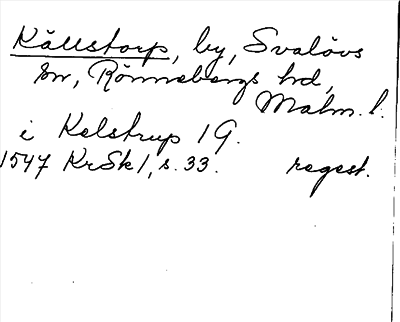 Källstorp, by, Svalövs
sn, Rönnebergs hrd,
Malm. l.
i Kelstrup 1 G.
1547 KrSk 1, s. 33. regest.